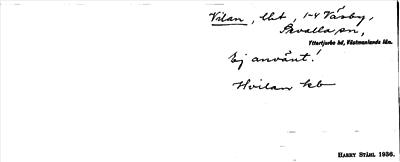 Vilan, lht, 1-4 Väsby,
Skvalla sn,
Yttertjurbo hd, Västmanlands län.
Ej använt!
Hvilan kb
HARRY STÅHL 1936.